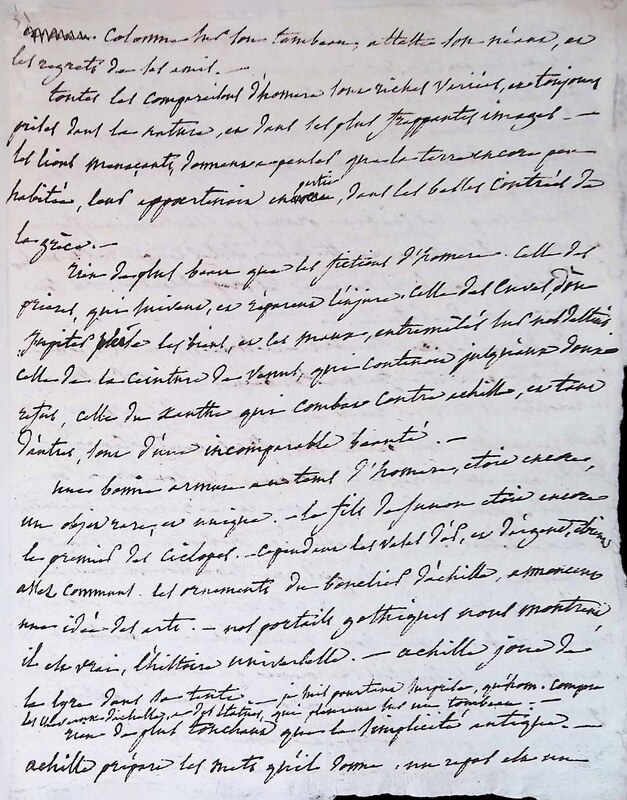 colonne sur son tombeau, atteste son néant, et
les regrets de ses amis. —
toutes les comparaisons d'homere sont riches variées, et toujours
prises dans la nature, et dans ses plus frappantes images. —
les lions menaçants, donnent a penser que la terre encore peu
habitée, leur appartenoit en partie, dans les belles contrées de
la grèce. —
rien de plus beau que les fictions d'homere. celle des
prieres, qui suivent, et reparent l'injure. celle des cuves, d'où
jupiter verse les biens, et les maux, entremêlés sur nos destins
celle de la ceinture de venus, qui contenoit jusqu'aux doux
refus, celle du xanthe qui combat contre achille, et tant
d'autres, sont d'une incomparable beauté. —
une bonne armure au tems d'homere, etoit encore,
un objet rare, et unique. — le fils de junon etoit encore
le premier des ciclopes. — cependant les vases d'or, et d'argent, etoient
assez communs. les ornements du bouclier d'achille, annoncent
une idée des arts. — nos portails gothiques nous montrent,
il est vrai, l'histoire universelle. — achille joue de
la lyre dans sa tente — je suis pourtant surprise, qu'hom. compare
les chevaux d'achille, a des statues, qui pleurent sur un tombeau. —
rien de plus touchant que la simplicité antique. —
achille prépare les mets qu'il donne. un repas est un